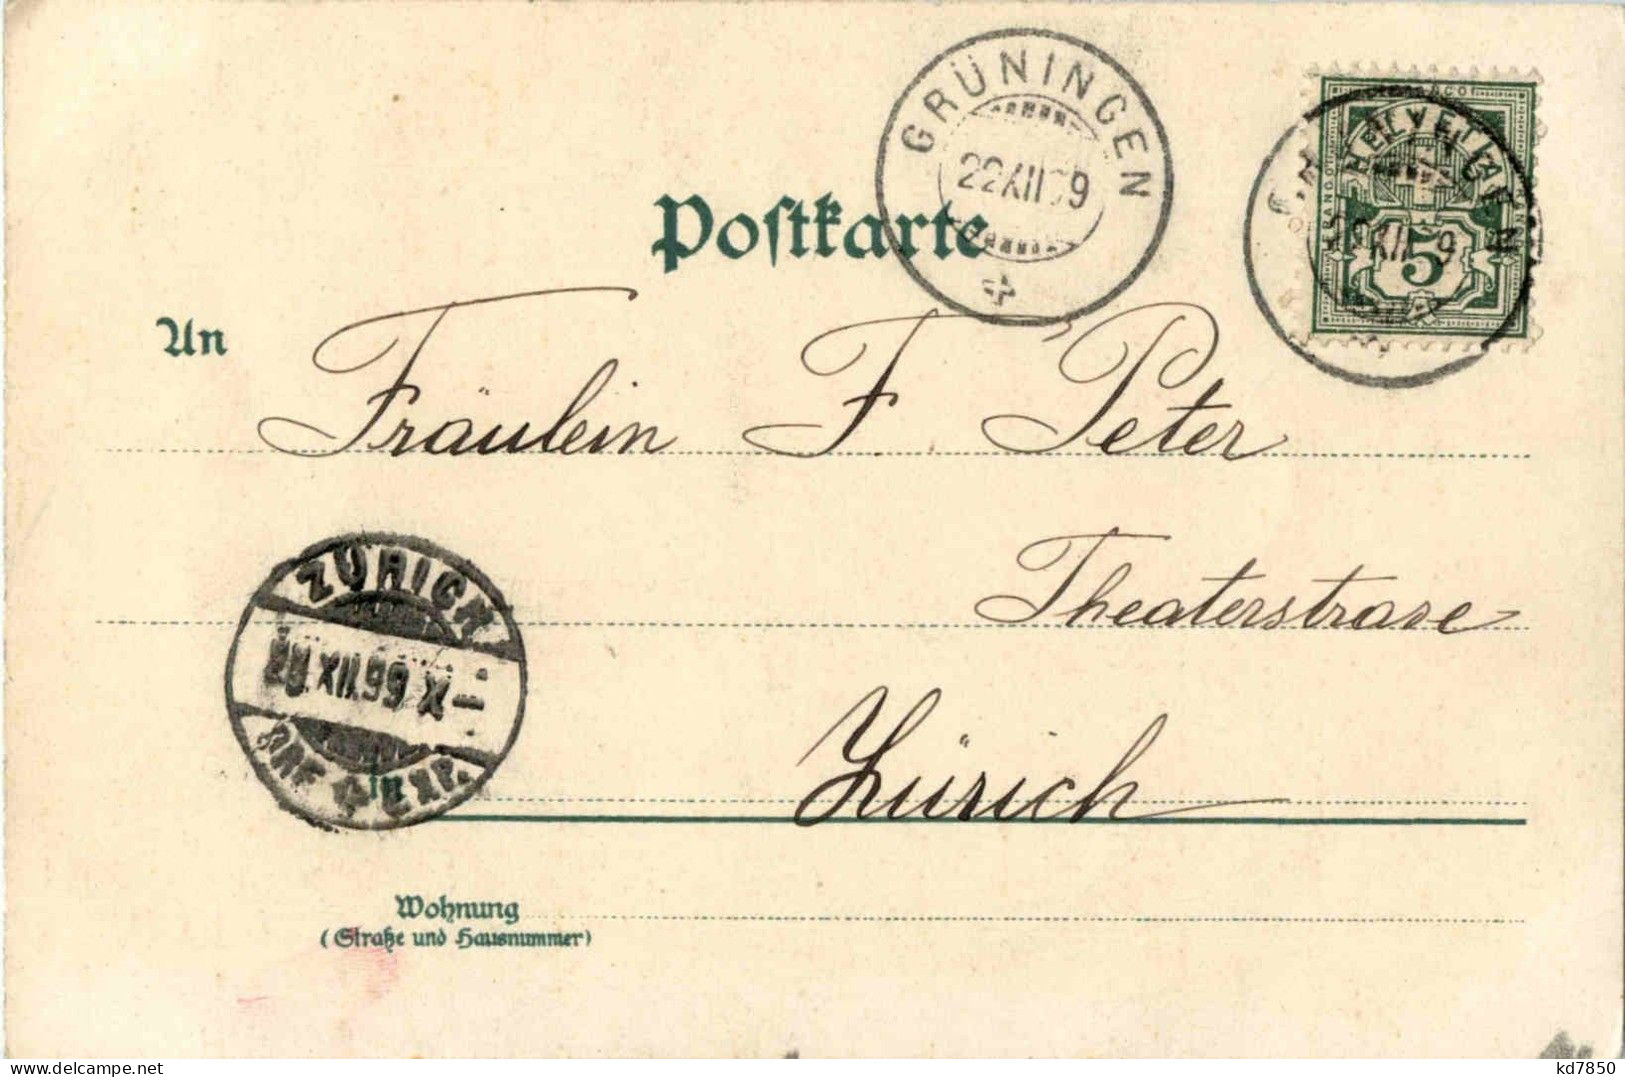 GRÜNINGEN
22 XII 99
HELVETIA
FRANCO
5
Postkarte
An
Fräulein F Peter
Theaterstrase
ZÜRICH
XII.99 X–
BRF. EXP.
in
Zürich
Wohnung
(Straße und Hausnummer)
delcampe.net
kd7850